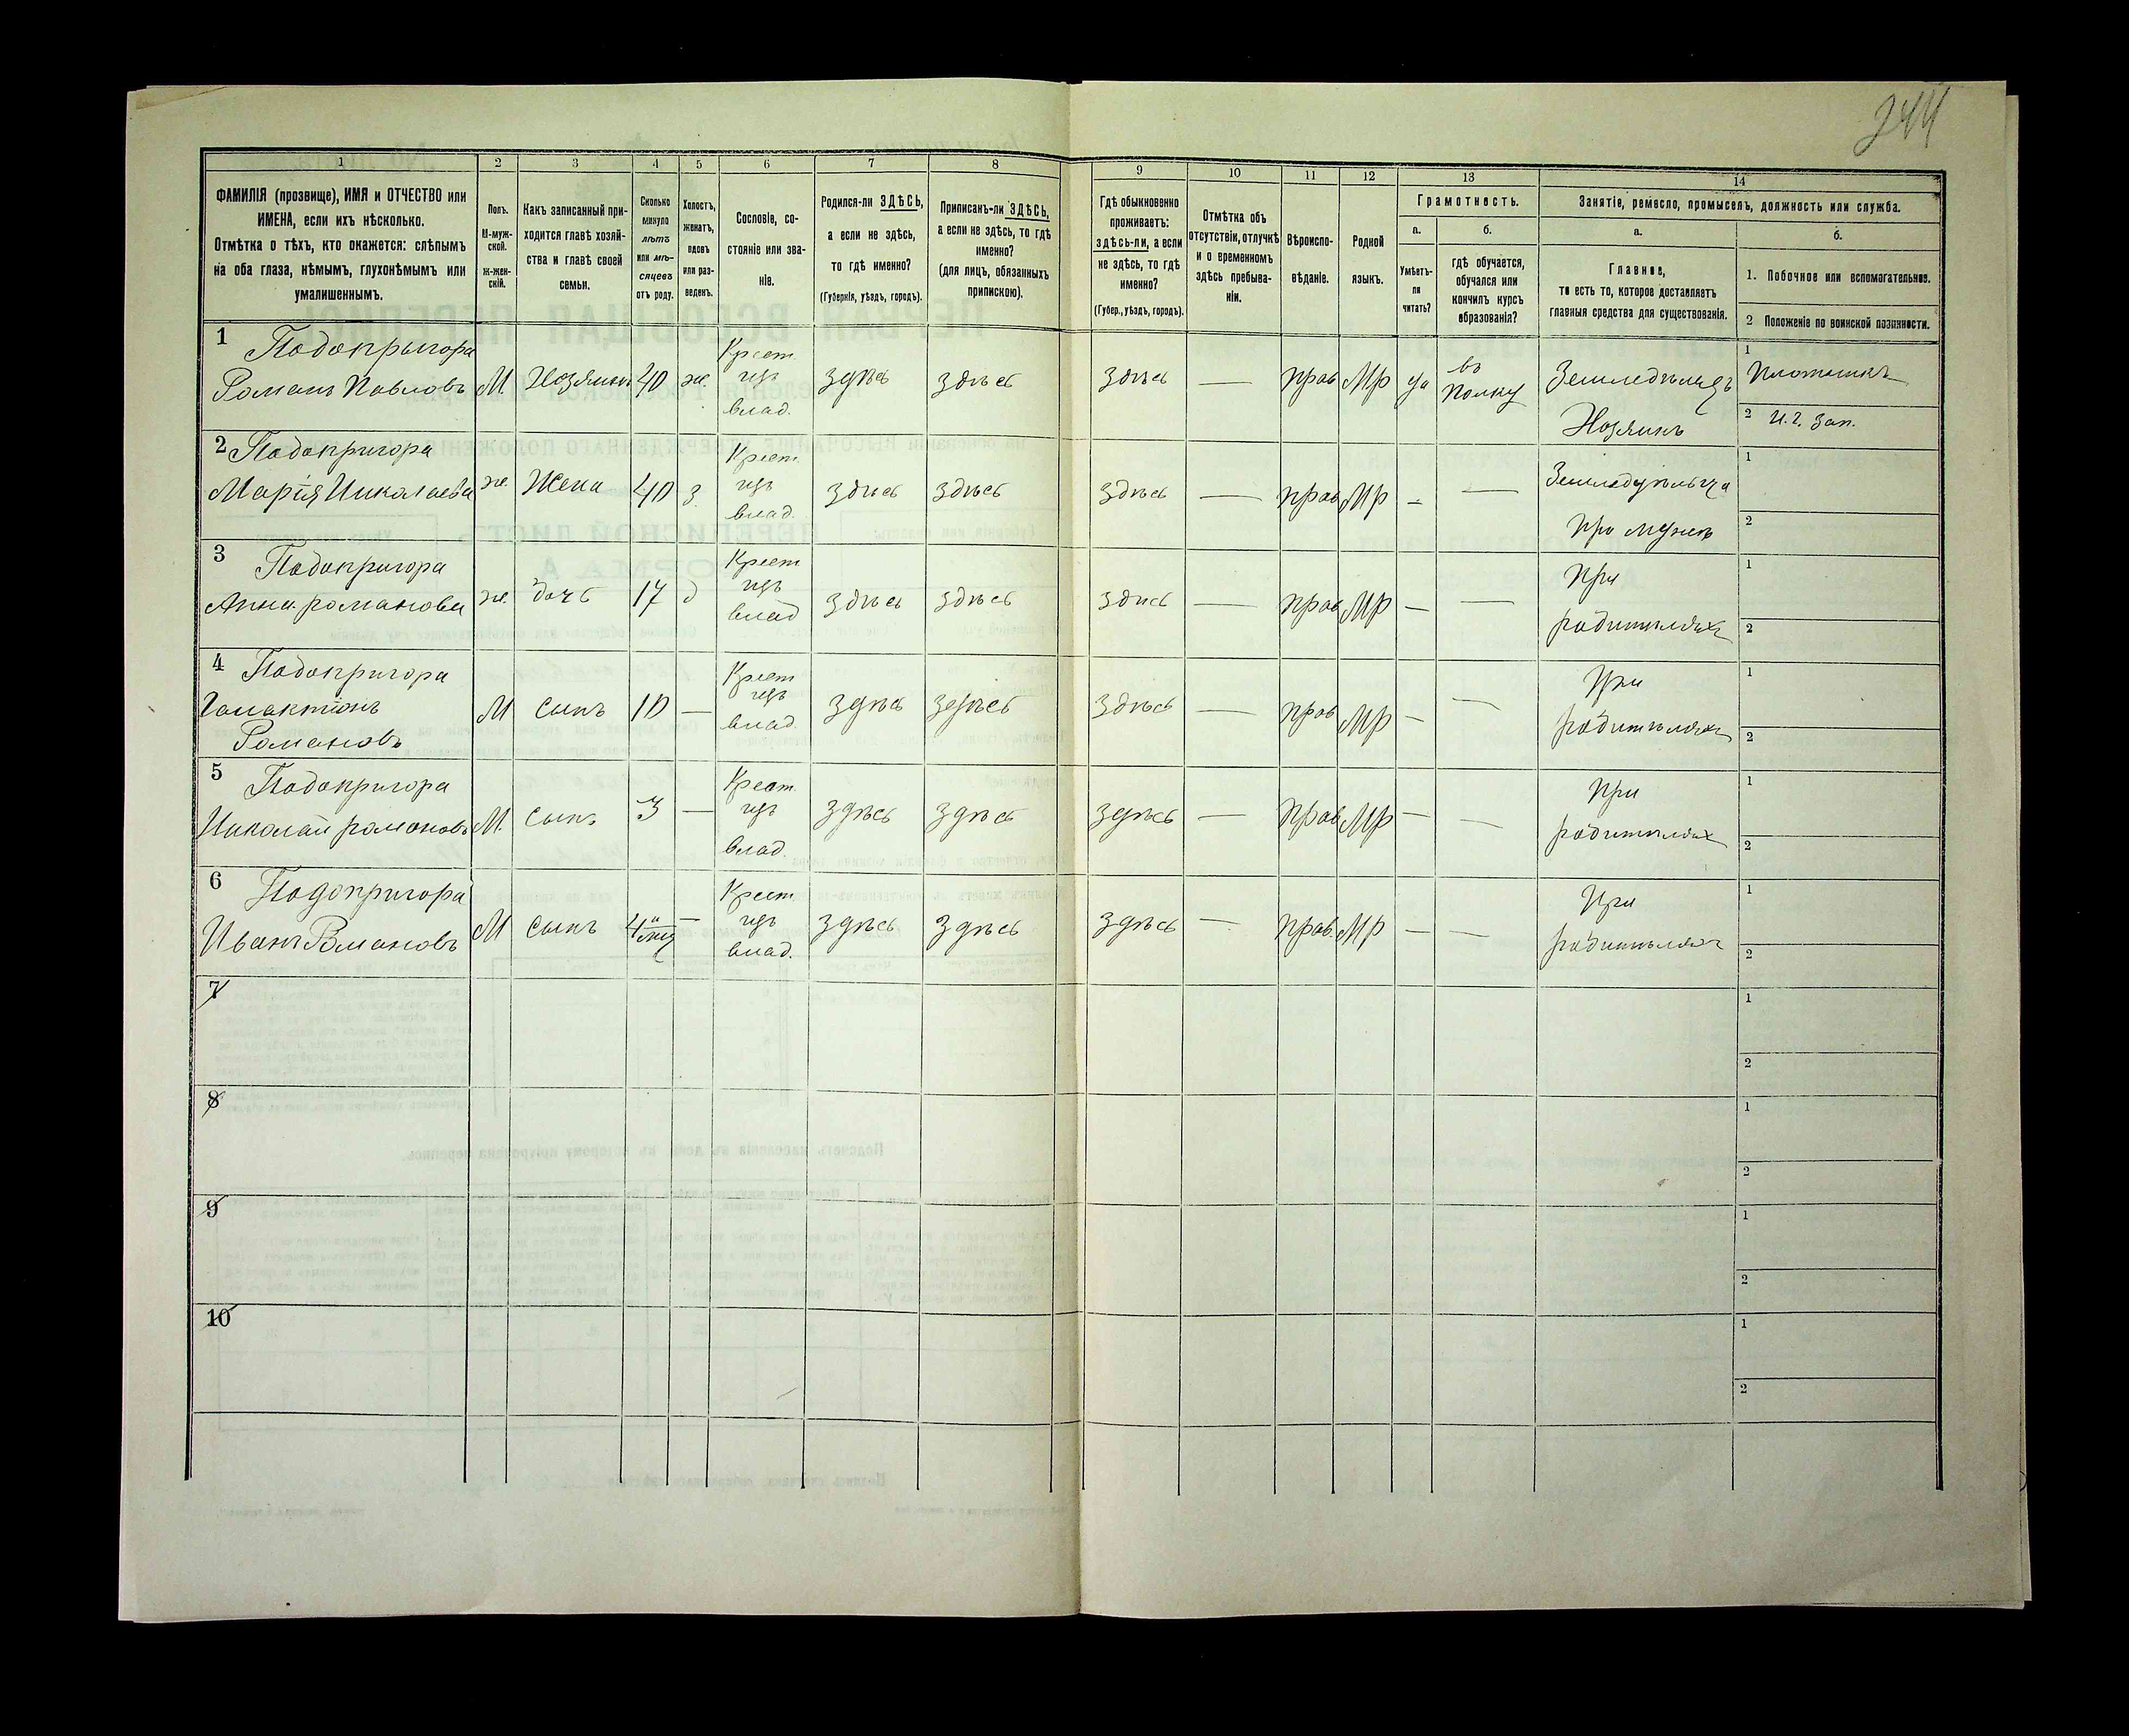 244
1 2 3 4 5 6 7 8 9 10 11 12 13 14
ФАМИЛІЯ (прозвище), ИМЯ и ОТЧЕСТВО или
ИМЕНА, если ихъ нѣсколько.
Отмѣтка о тѣхъ, кто окажется: слѣпымъ
на оба глаза, нѣмымъ, глухонѣмымъ или
умалишеннымъ.
Полъ.
М-муж-
ской.
ж-жен-
скій.
Какъ записанный при-
ходится главѣ хозяй-
ства и главѣ своей
семьи.
Сколько
минуло
лѣтъ
или мѣ-
сяцевъ
отъ роду.
Холостъ,
женатъ,
вдовъ
или раз-
веденъ.
Сословіе, со-
стояніе или зва-
ніе.
Родился-ли ЗДѢСЬ,
а если не здѣсь,
то гдѣ именно?
(Губернія, уѣздъ, городъ).
Приписанъ-ли ЗДѢСЬ,
а если не здѣсь, то гдѣ
именно?
(для лицъ, обязанныхъ
припискою).
Гдѣ обыкновенно
проживаетъ:
здѣсь-ли, а если
не здѣсь, то гдѣ
именно?
(Губер., уѣздъ, городъ).
Отмѣтка объ
отсутствіи, отлучкѣ
и о временномъ
здѣсь пребыва-
ніи.
Вѣроиспо-
вѣданіе.
Родной
языкъ.
Грамотность.
а.
Умѣетъ-
ли
читать?
б.
гдѣ обучается,
обучался или
кончилъ курсъ
образованія?
Занятіе, ремесло, промыселъ, должность или служба.
а.
Главное,
то есть то, которое доставляетъ
главныя средства для существованія.
б.
1. Побочное или вспомогательное.
2 Положеніе по воинской повинности.
1 Подопрыгора
Романъ Павловъ
М.
Хозяинъ
40
ж.
Крест.
изъ
влад.
здѣсь
здѣсь
здѣсь
—
прав
Мр
да
въ
полку
Земледѣлецъ
Хозяинъ
1 Плотникъ
2 И. 2. Зап.
2 Подопригора
Марія Николаева
ж.
Жена
40
з.
Крест.
изъ
влад.
здѣсь
здѣсь
здѣсь
—
прав
Мр
—
—
При мужѣ
1
2
3 Подопригора
Анна романова
ж.
дочь
17
д
Крест
изъ
влад
здѣсь
здѣсь
здѣсь
—
прав
Мр
—
—
При
родителяхъ
1
2
4 Подопригора
Галактіонъ
Романовъ
М
сынъ
10
—
Крест
изъ
влад.
здѣсь
здѣсь
здѣсь
—
прав
Мр
—
—
При
родителяхъ
1
2
5 Подопригора
Николай романовъ
М.
сынъ
3
—
Крест.
изъ
влад.
здѣсь
здѣсь
здѣсь
—
прав
Мр
—
—
При
родителяхъ
1
2
6 Подопригора
Иванъ Романовъ
М
сынъ
4 мѣс
—
Крест.
изъ
влад.
здѣсь
здѣсь
здѣсь
—
прав.
Мр
—
—
При
родителяхъ
1
2
7
1
2
8
1
2
9
1
2
10
1
2